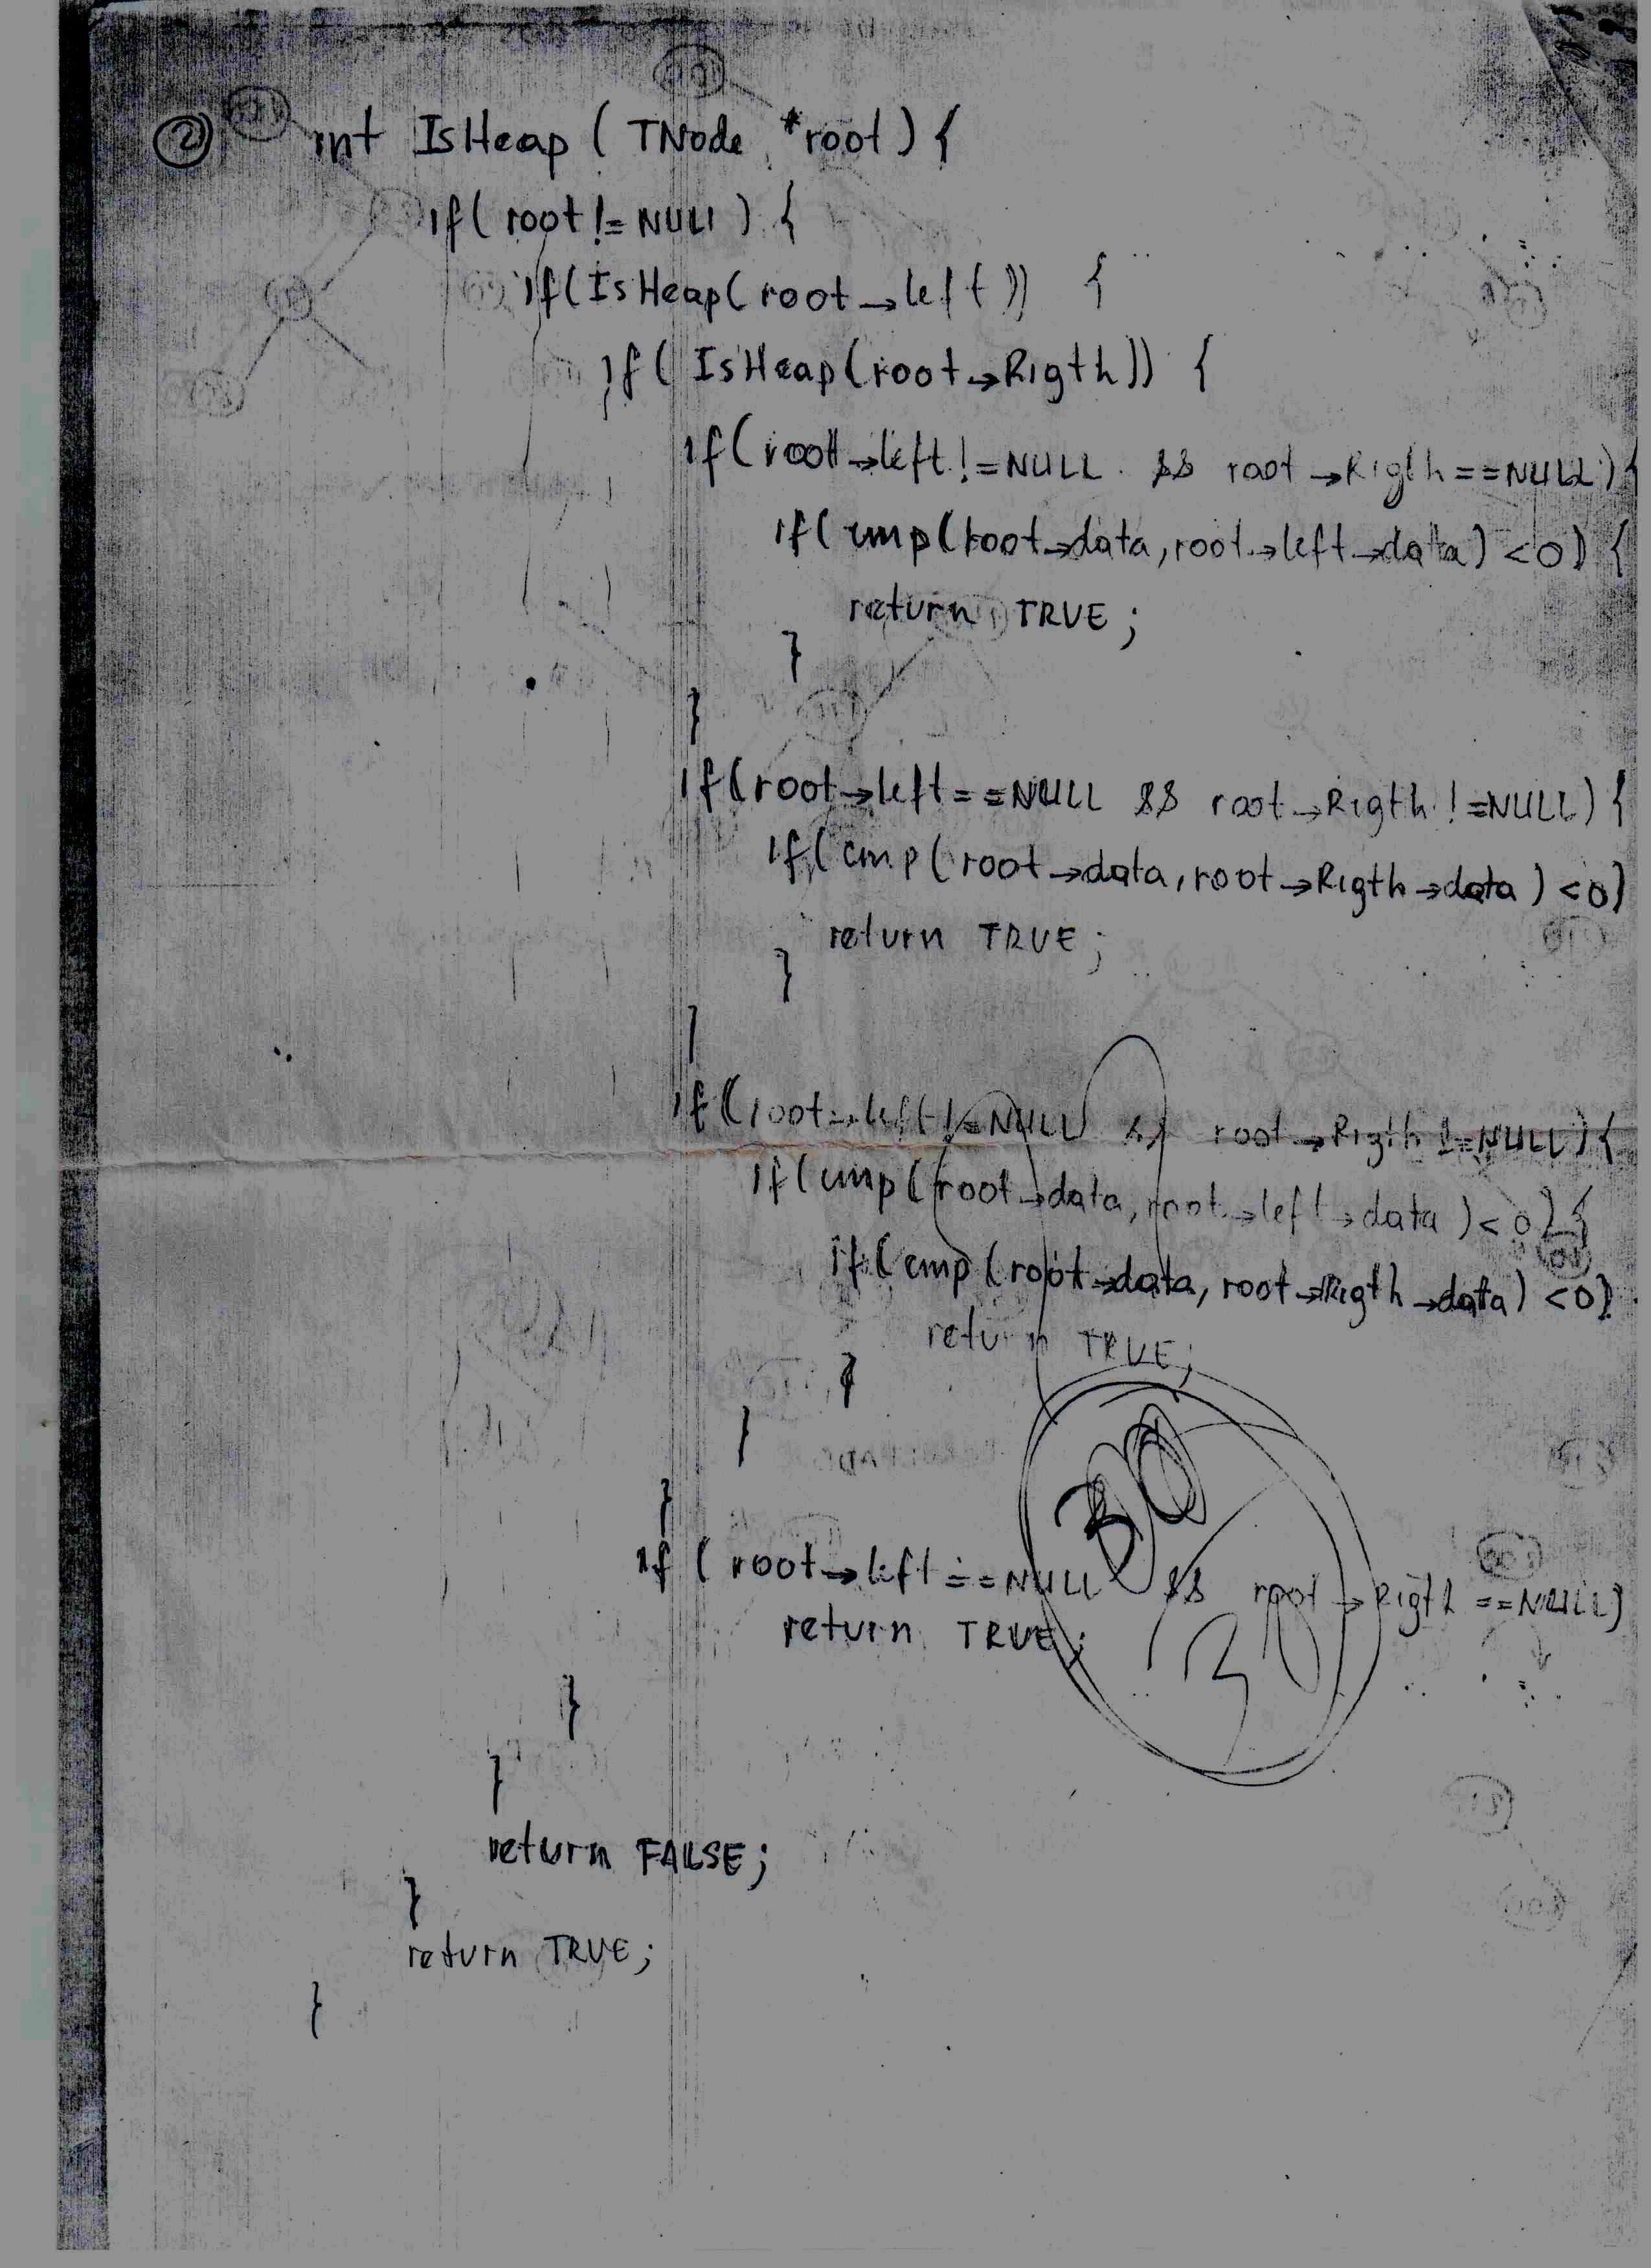 ② int IsHeap ( TNode *root ) {
if( root != NULL ) {
if(IsHeap( root → left )) {
if( IsHeap(root → Rigth)) {
if( root → left != NULL && root → Rigth == NULL ) {
if( cmp( root → data, root → left → data ) < 0) {
return TRUE ;
}
}
if( root → left == NULL && root → Rigth != NULL ) {
if( cmp ( root → data, root → Rigth → data ) < 0)
return TRUE ;
}
}
if( root → left != NULL && root → Rigth != NULL ) {
if( cmp ( root → data, root → left → data ) < 0) {
if( cmp ( root → data, root → Rigth → data ) < 0)
return TRUE ;
}
}
}
30
if ( root → left == NULL && root → Rigth == NULL )
return TRUE ;
30
}
}
return FALSE ;
}
return TRUE ;
}